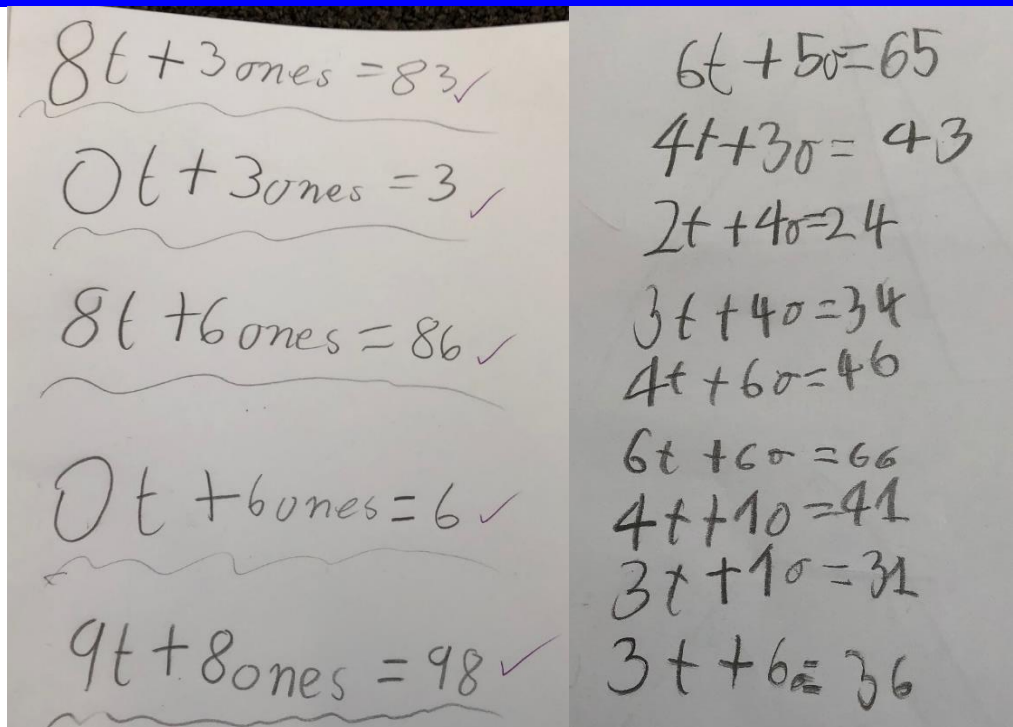 8t + 3 ones = 83 ✓
0t + 3 ones = 3 ✓
8t + 6 ones = 86 ✓
0t + 6 ones = 6 ✓
9t + 8 ones = 98 ✓
6t + 5o = 65
4t + 3o = 43
2t + 4o = 24
3t + 4o = 34
4t + 6o = 46
6t + 6o = 66
4t + 1o = 41
3t + 1o = 31
3t + 6 = 36